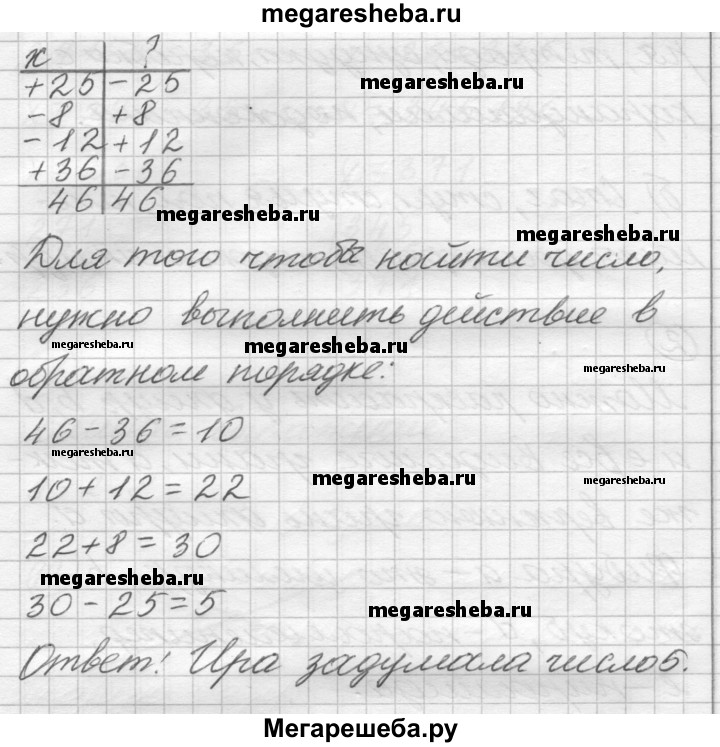 megaresheba.ru
x | ?
+25 | -25
megaresheba.ru
-8 | +8
-12 | +12
+36 | -36
46 | 46
megaresheba.ru
megaresheba.ru
Для того чтобы найти число,
нужно выполнить действие в
megaresheba.ru
megaresheba.ru
обратном порядке:
megaresheba.ru
46 - 36 = 10
megaresheba.ru
10 + 12 = 22
megaresheba.ru
megaresheba.ru
22 + 8 = 30
megaresheba.ru
30 - 25 = 5
megaresheba.ru
Ответ! Ира задумала число 5.
Мегарешеба.ру